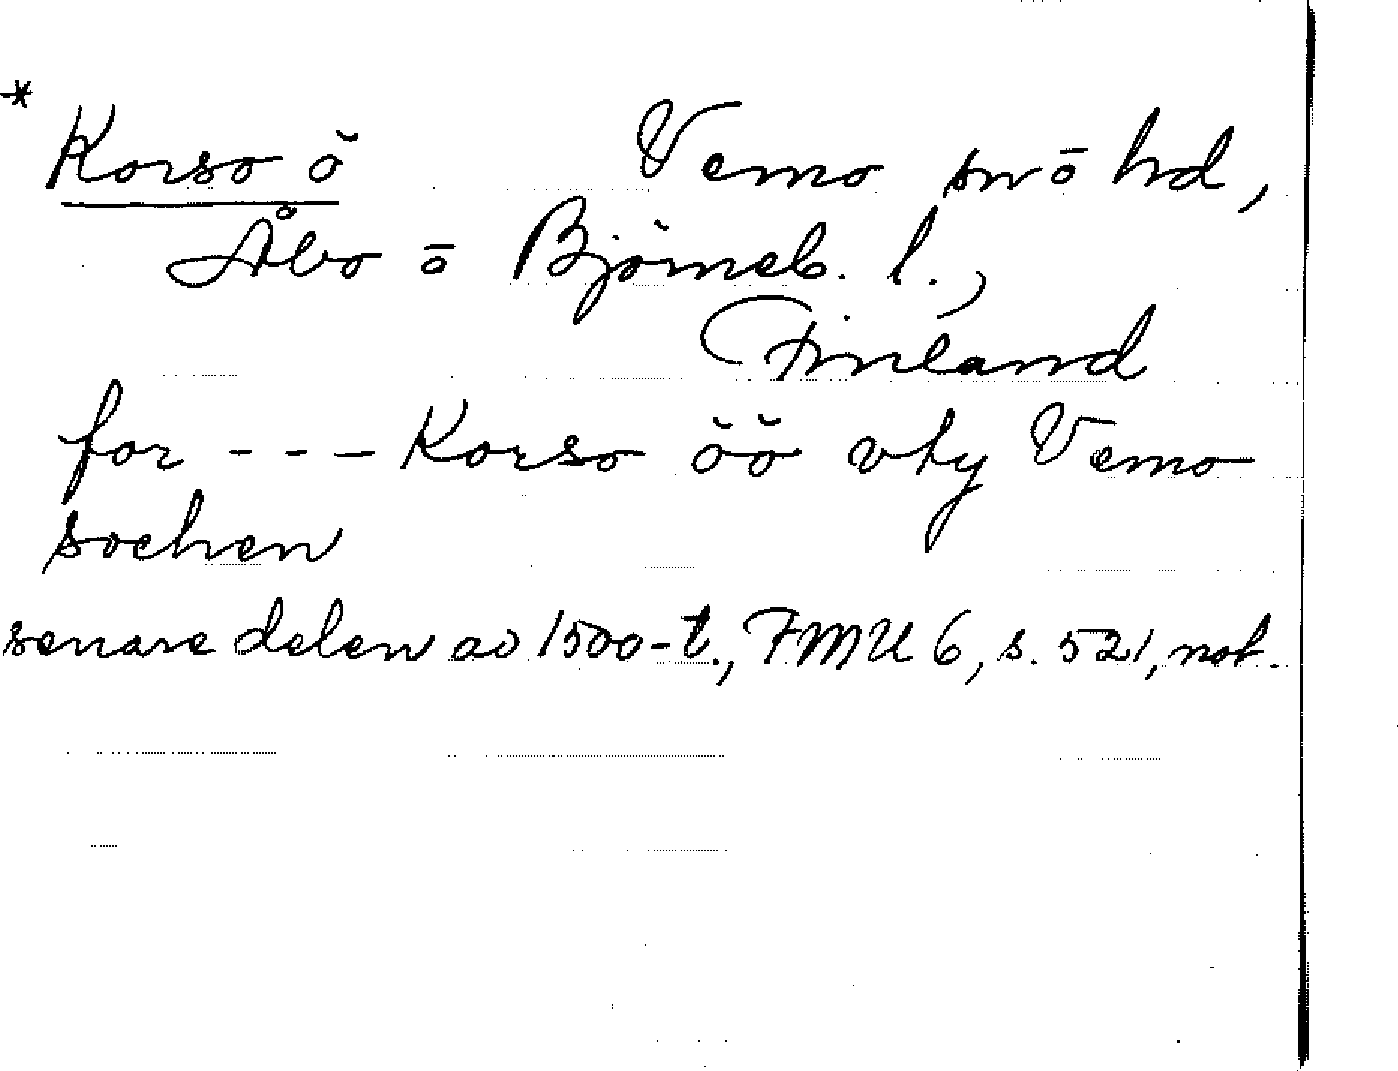 * Korso ö Vemo sn ō hd,
Åbo ō Björneb. l.,
Finland
for - - - Korso öö vty Vemo
sochen
senare delen av 1500-t., FMU 6, s. 521, not.